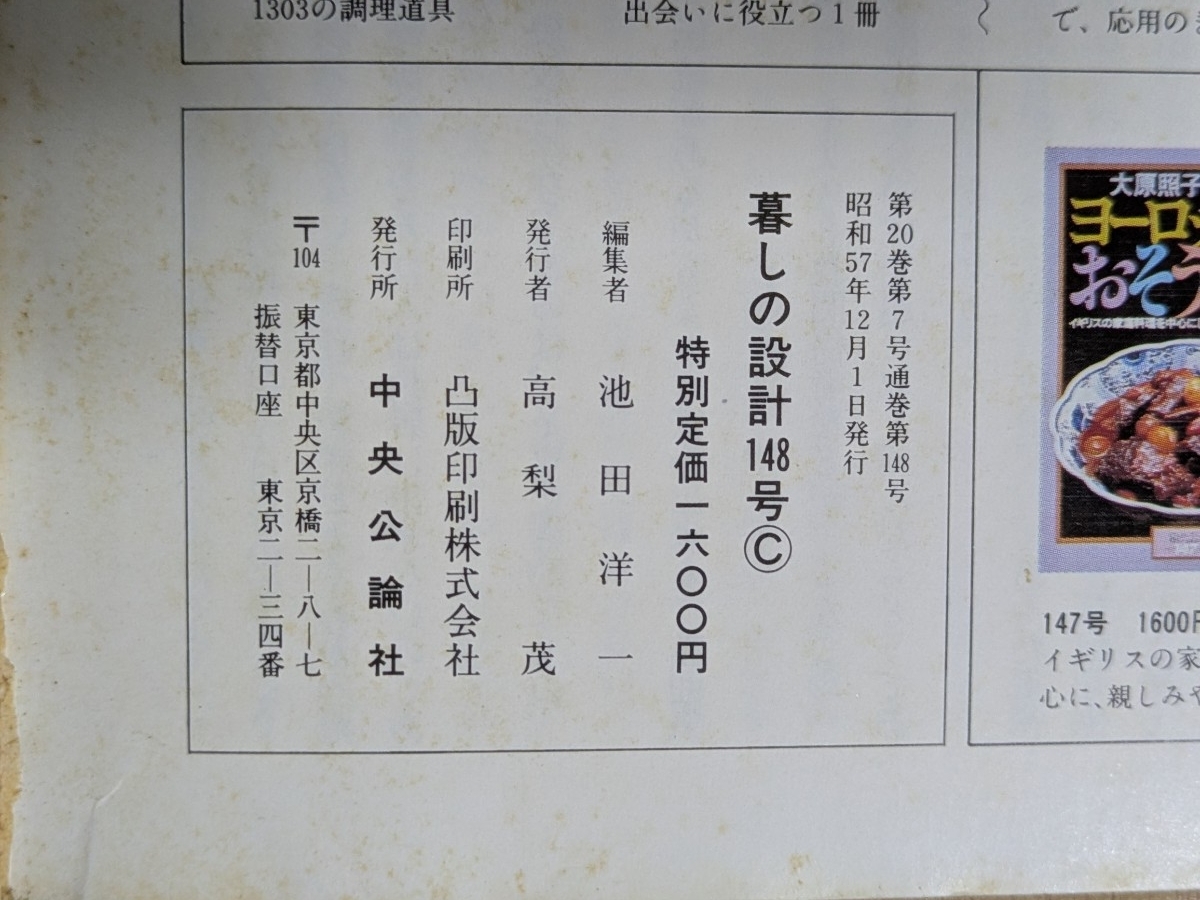 1303の調理道具
出会いに役立つ1冊
で、応用の
第20巻第7号通巻第148号
昭和57年12月1日発行
暮しの設計148号Ⓒ
特別定価一六〇〇円
編集者 池田洋一
発行者 高梨茂
印刷所 凸版印刷株式会社
発行所 中央公論社
〒104 東京都中央区京橋二―八―七
振替口座 東京二―三四番
大原照子
ヨーロ
おそう
147号 1600円
イギリスの家
心に、親しみや